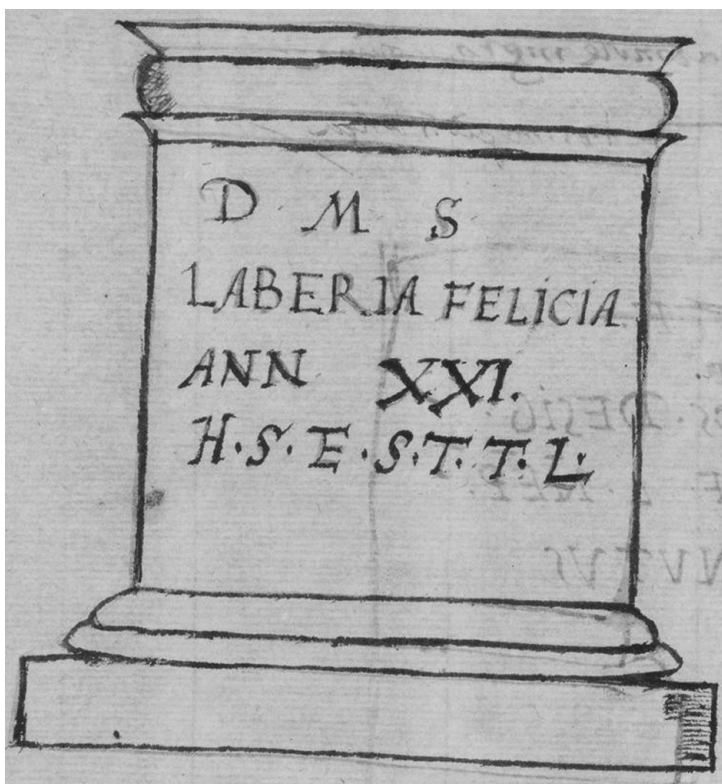 D M S
LABERIA FELICIA
ANN XXI.
H.S.E.S.T.T.L.